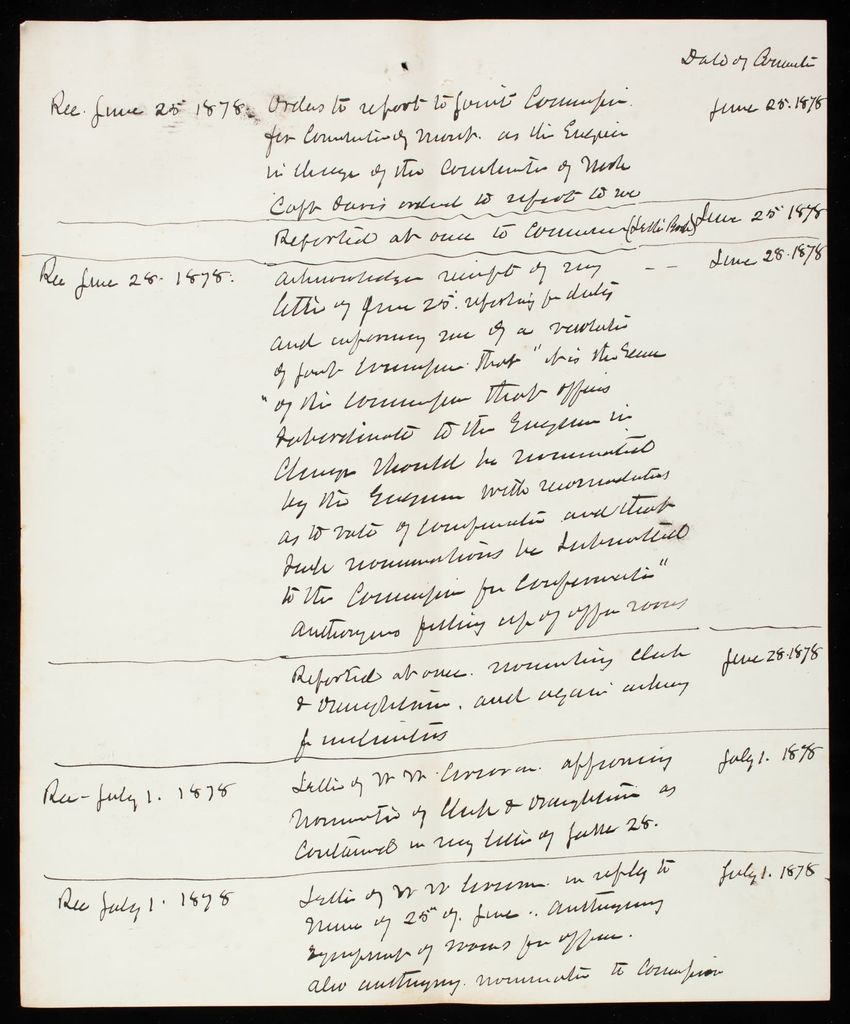 Date of
Rec. June 25 1878. Orders to report to Joint Commission June 25. 1878
for Completion of Mont. as the Engineer
in charge of the Construction of Work
Capt Davis ordered to report to me
Reported at once to Commission (Letter Book) June 25 1878
Rec June 28. 1878. acknowledges receipt of my -- June 28. 1878
letter of June 25. reporting for duty
and informing me of a resolution
of Joint Commission that "it is the
"of the Commission that officers
subordinate to the Engineer in
Charge should be nominated
by the Engineer with recommendations
as to rate of compensation and that
such nominations be submitted
to the Commission for confirmation"
authorizing fitting up of office rooms
Reported at once. nominating Clerk June 28. 1878
& Draughtsman. and again asking
for instructions
Rec- July 1. 1878 Letter of W W Corcoran approving July 1. 1878
nomination of Clerk & Draughtsman as
contained in my letter of June 28.
Rec July 1. 1878 Letter of W W Corcoran in reply to July 1. 1878
mine of 25" of June. authorizing
of rooms for office.
also authorizing. nomination to Commission